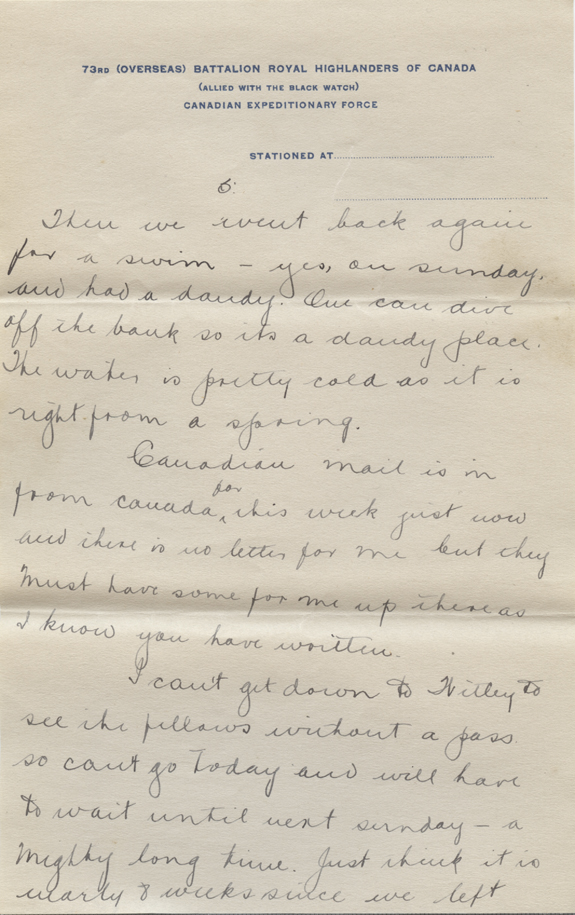 73RD (OVERSEAS) BATTALION ROYAL HIGHLANDERS OF CANADA
(ALLIED WITH THE BLACK WATCH)
CANADIAN EXPEDITIONARY FORCE
STATIONED AT
5.
Then we went back again
for a swim – yes, on sunday,
and had a dandy. One can dive
off the bank so its a dandy place.
The water is pretty cold as it is
right from a spring.
Canadian mail is in
from canada, for this week just now
and there is no letter for me but they
must have some for me up there as
I know you have written.
I can't get down to Witley to
see the fellows without a pass
so cant go today and will have
to wait until next sunday – a
mighty long time. Just think it is
nearly 8 weeks since we left